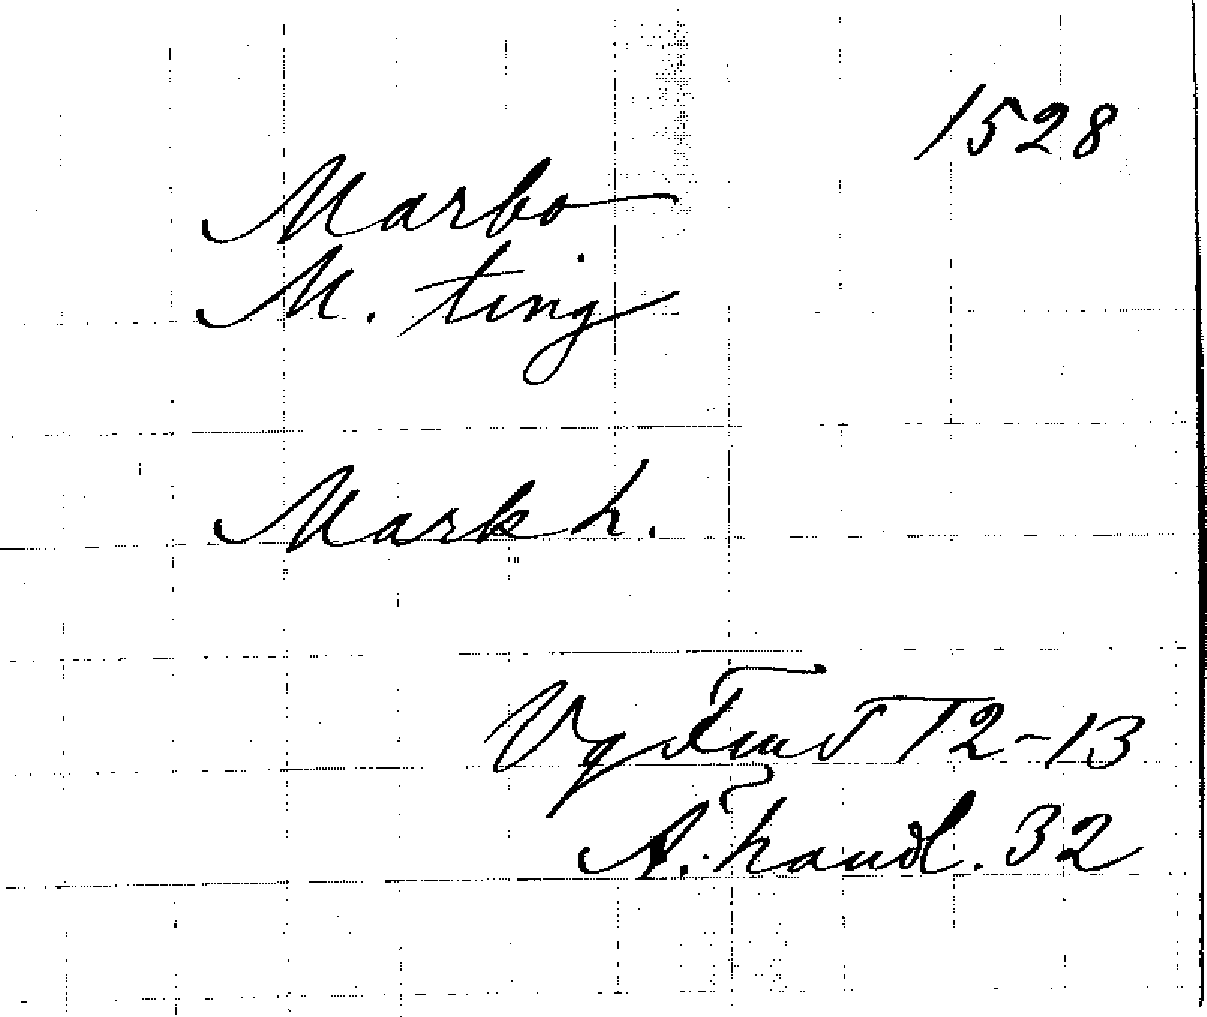 1528
Marbo
M. ting
Mark h.
Vg Fmt 12-13
Ä. handl. 32